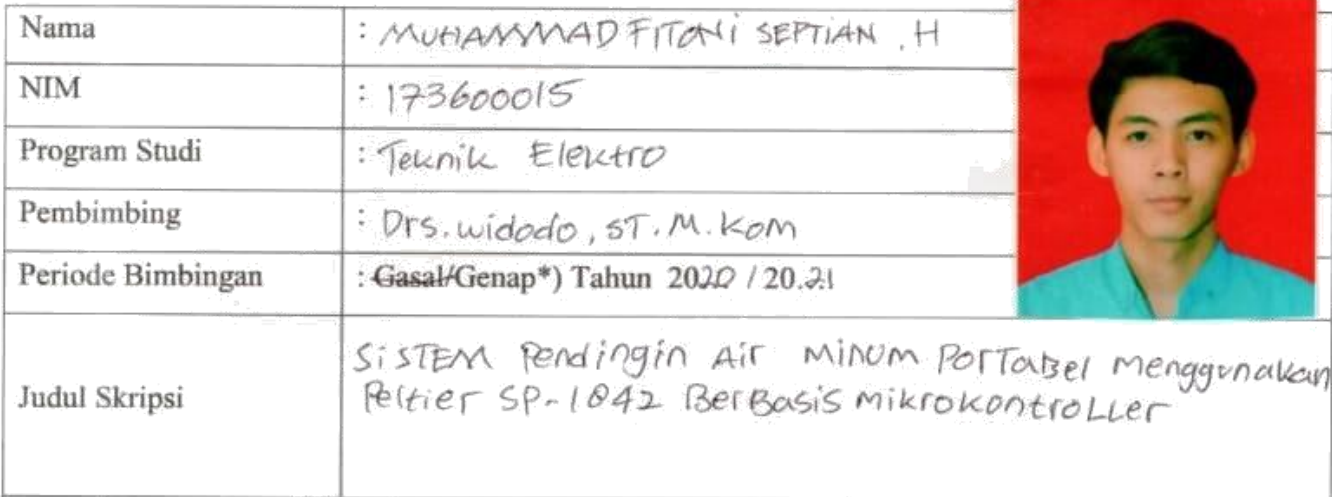 Nama : MUHAMMAD FITONI SEPTIAN . H
NIM : 173600015
Program Studi : Teknik Elektro
Pembimbing : Drs. widodo, ST. M. Kom
Periode Bimbingan : Gasal/Genap*) Tahun 2020 / 20.21
Judul Skripsi : SiSTEM Pendingin Air MiNUM PorTaBel Menggunakan
Peltier SP-1842 BerBasis mikrokontroLLer